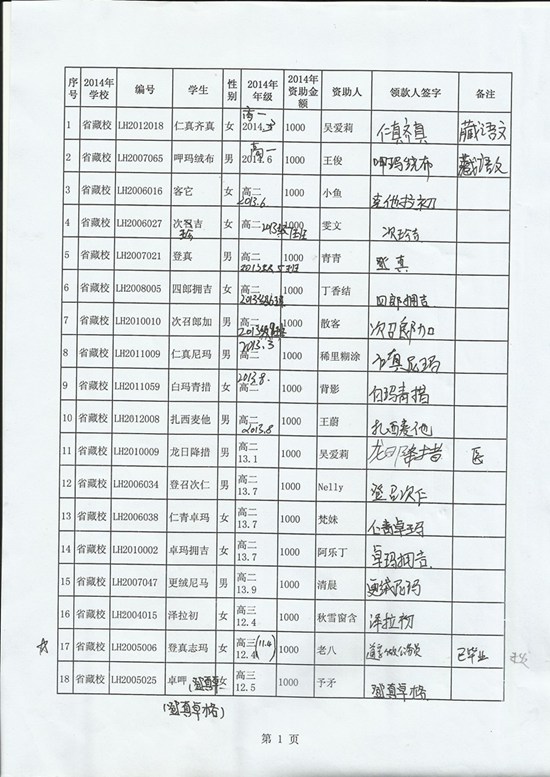 序号 2014年学校 编号 学生 性别 2014年年级 2014年资助金额 资助人 领款人签字 备注
1 省藏校 LH2012018 仁真齐真 女 高一 2014.3 1000 吴爱莉 仁真齐真 藏语文
2 省藏校 LH2007065 呷玛绒布 男 高一 2014.6 1000 王俊 呷玛绒布 藏语文
3 省藏校 LH2006016 客它 女 高二 2013.6 1000 小鱼
4 省藏校 LH2006027 次召吉 女 高二 1000 雯文 次珍吉
5 省藏校 LH2007021 登真 男 高二 1000 青青 登真
6 省藏校 LH2008005 四郎拥吉 女 高二 1000 丁香结 四郎拥吉
7 省藏校 LH2010010 次召郎加 男 高二 1000 散客 次召郎加
8 省藏校 LH2011009 仁真尼玛 男 2013.3 高二 1000 稀里糊涂 仁真尼玛
9 省藏校 LH2011059 白玛青措 女 2013.8. 高二 1000 背影 白玛青措
10 省藏校 LH2012008 扎西麦他 男 高二 2013.8 1000 王蔚 扎西麦他
11 省藏校 LH2010009 龙日降措 男 高二 13.1 1000 吴爱莉 龙日降措 医
12 省藏校 LH2006034 登召次仁 男 高二 13.7 1000 Nelly 登召次仁
13 省藏校 LH2006038 仁青卓玛 女 高二 13.7 1000 梵妹 仁青卓玛
14 省藏校 LH2010002 卓玛拥吉 女 高二 13.7 1000 阿乐丁 卓玛拥吉
15 省藏校 LH2007047 更绒尼马 男 高二 13.9 1000 清晨 更绒尼玛
16 省藏校 LH2004015 泽拉初 女 高三 12.4 1000 秋雪窗含 泽拉初
17 省藏校 LH2005006 登真志玛 女 高三 12.4 (11.4) 1000 老八 已毕业
18 省藏校 LH2005025 卓呷 (登真卓 女 高三 12.5 1000 予矛 登真卓格
(登真卓格)
第 1 页